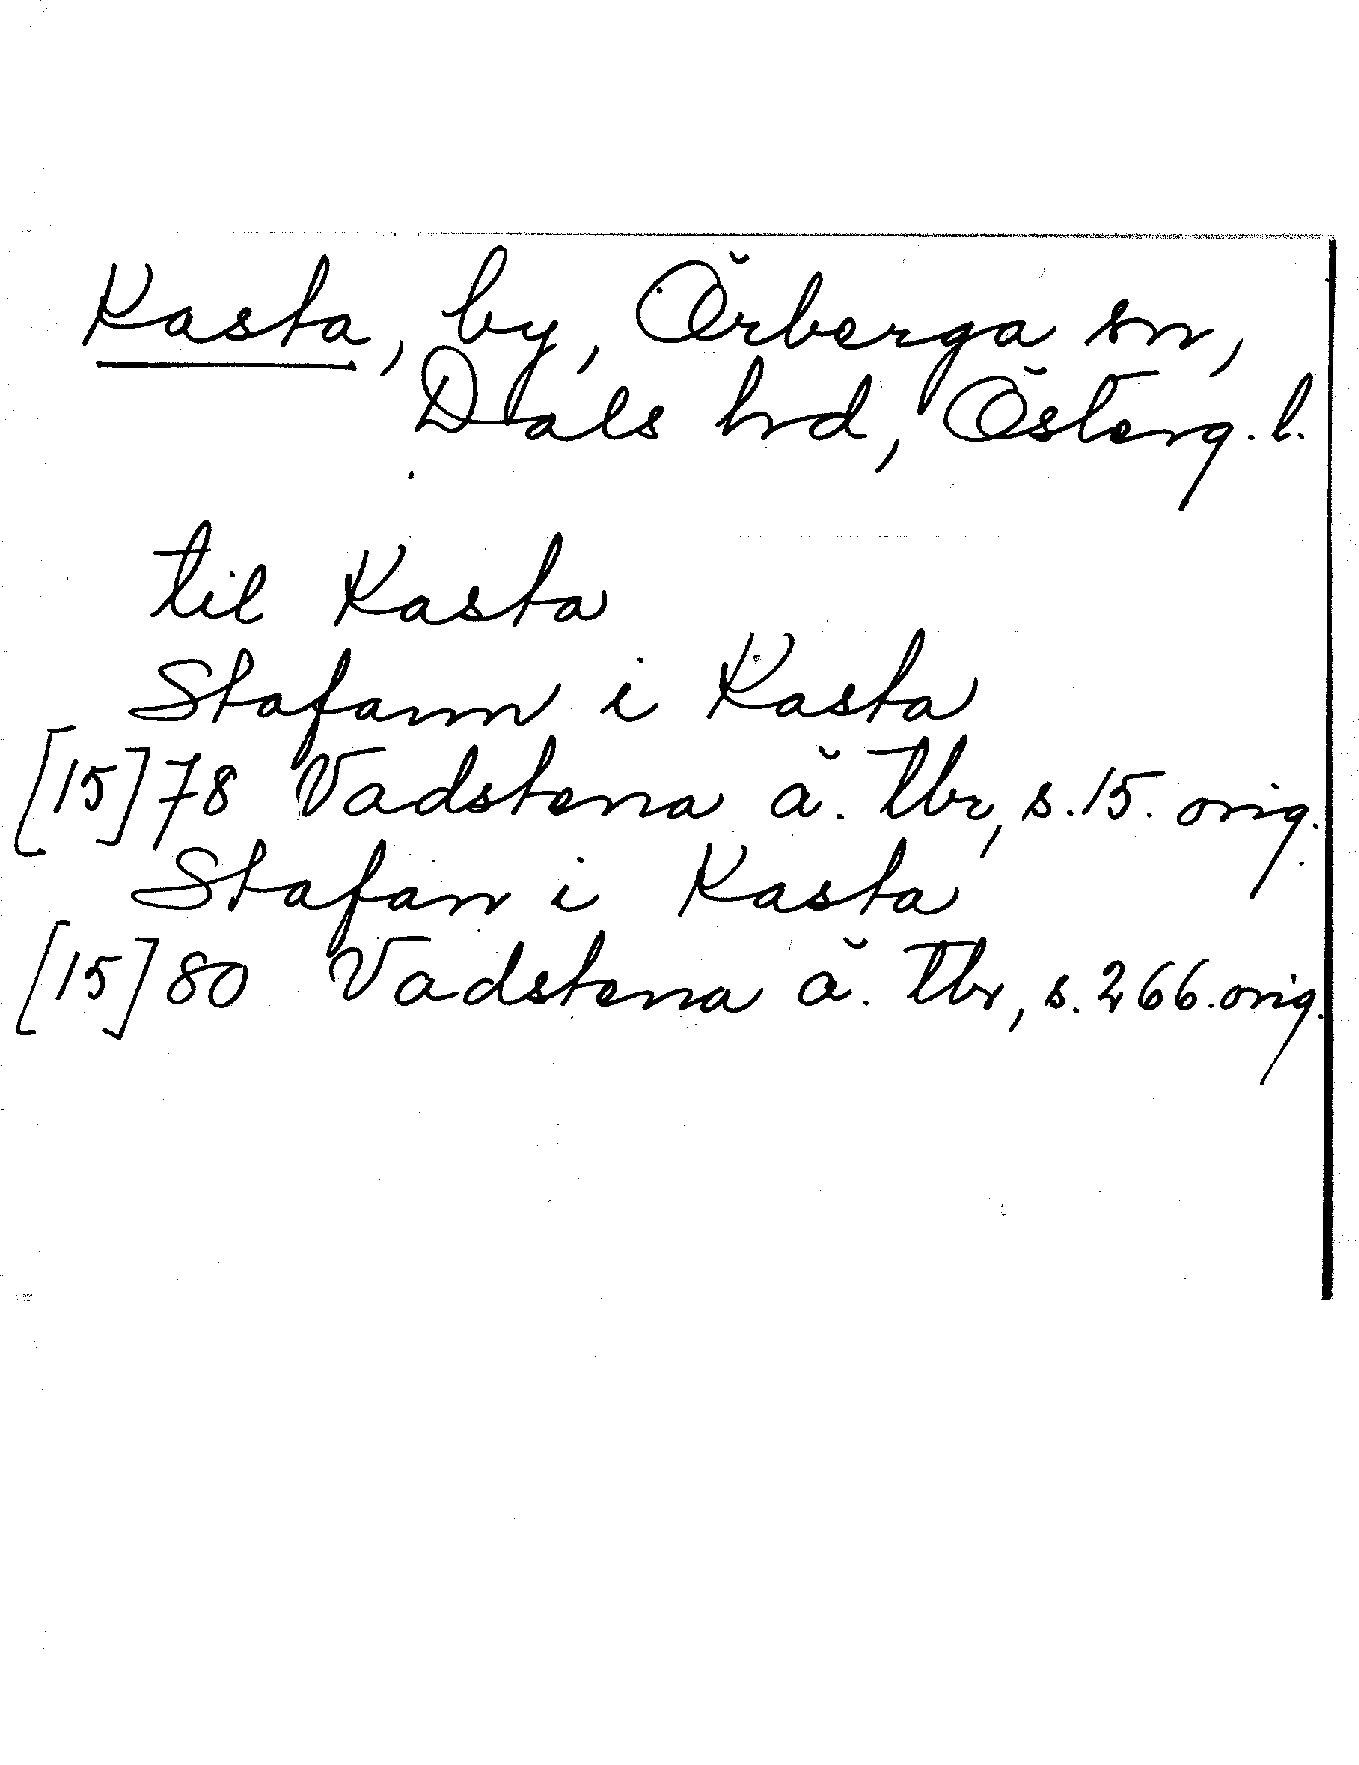 Kasta, by, Örberga sn,
Dals hrd, Österg. l.
til Kasta
Stafann i Kasta
[15]78 Vadstena ä. tbr, s. 15. orig.
Stafan i Kasta
[15]80 Vadstena ä. tbr, s. 266. orig.